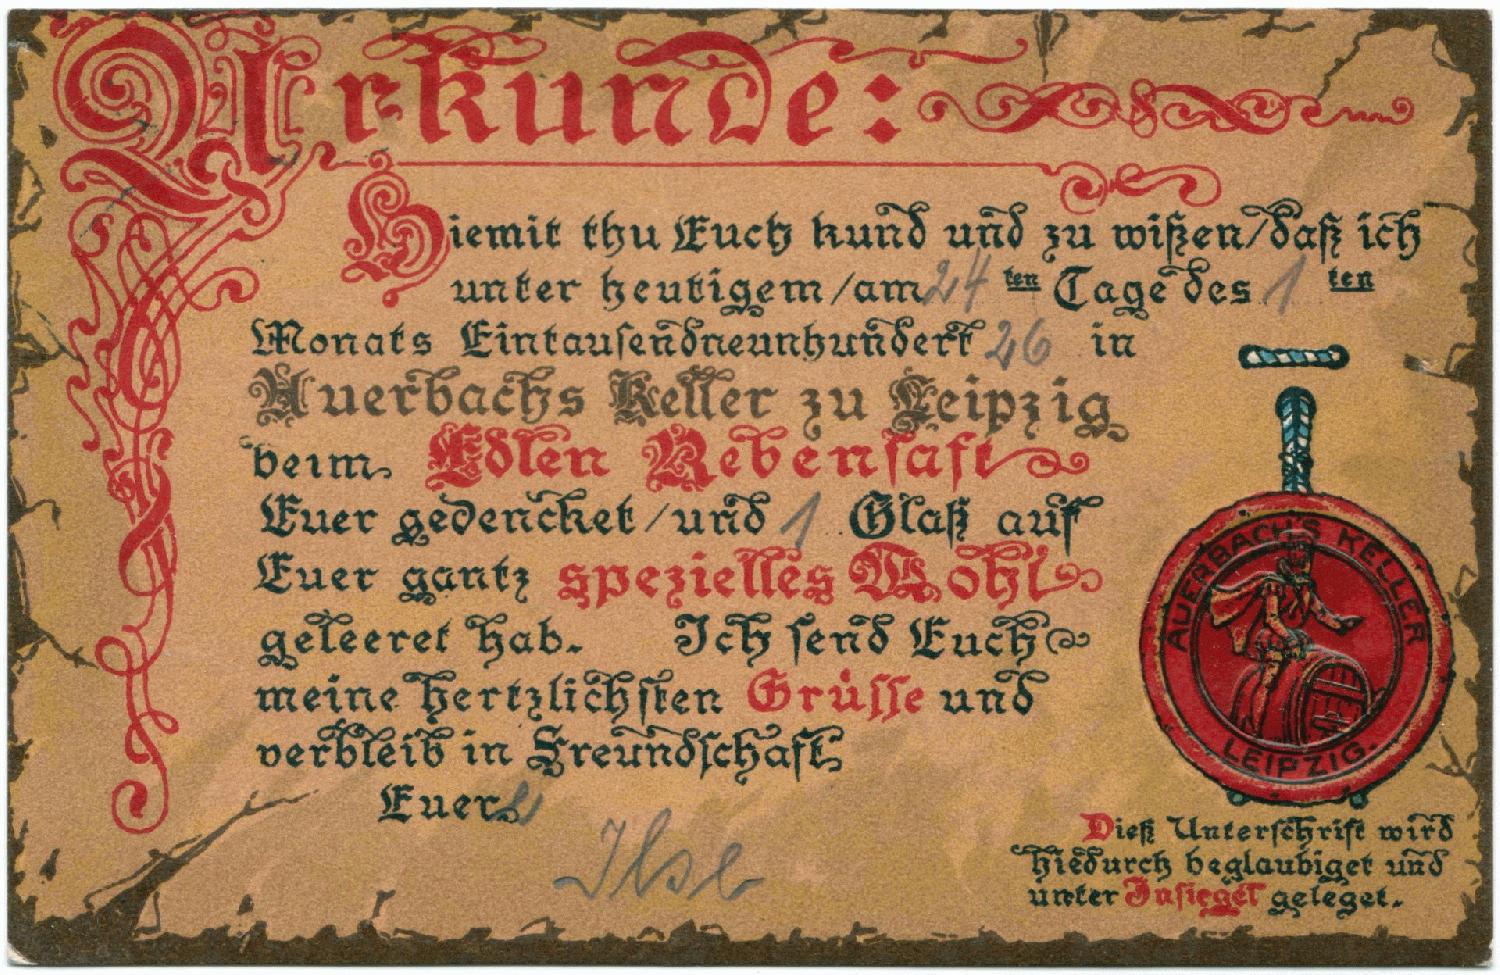 Urkunde:
Hiemit thu Euch kund und zu wißen/daß ich
unter heutigem/am 24 ten Tage des 1 ten
Monats Eintausendneunhundert 26 in
Auerbachs Keller zu Leipzig
beim Edlen Rebensaft
Euer gedencket/und 1 Glaß auf
Euer gantz spezielles Wohl
geleeret hab. Ich send Euch
meine hertzlichsten Grüsse und
verbleib in Freundschaft
Euere
Ilse
AUERBACH'S KELLER
LEIPZIG.
Dieß Unterschrift wird
hiedurch beglaubiget und
unter Insiegel geleget.